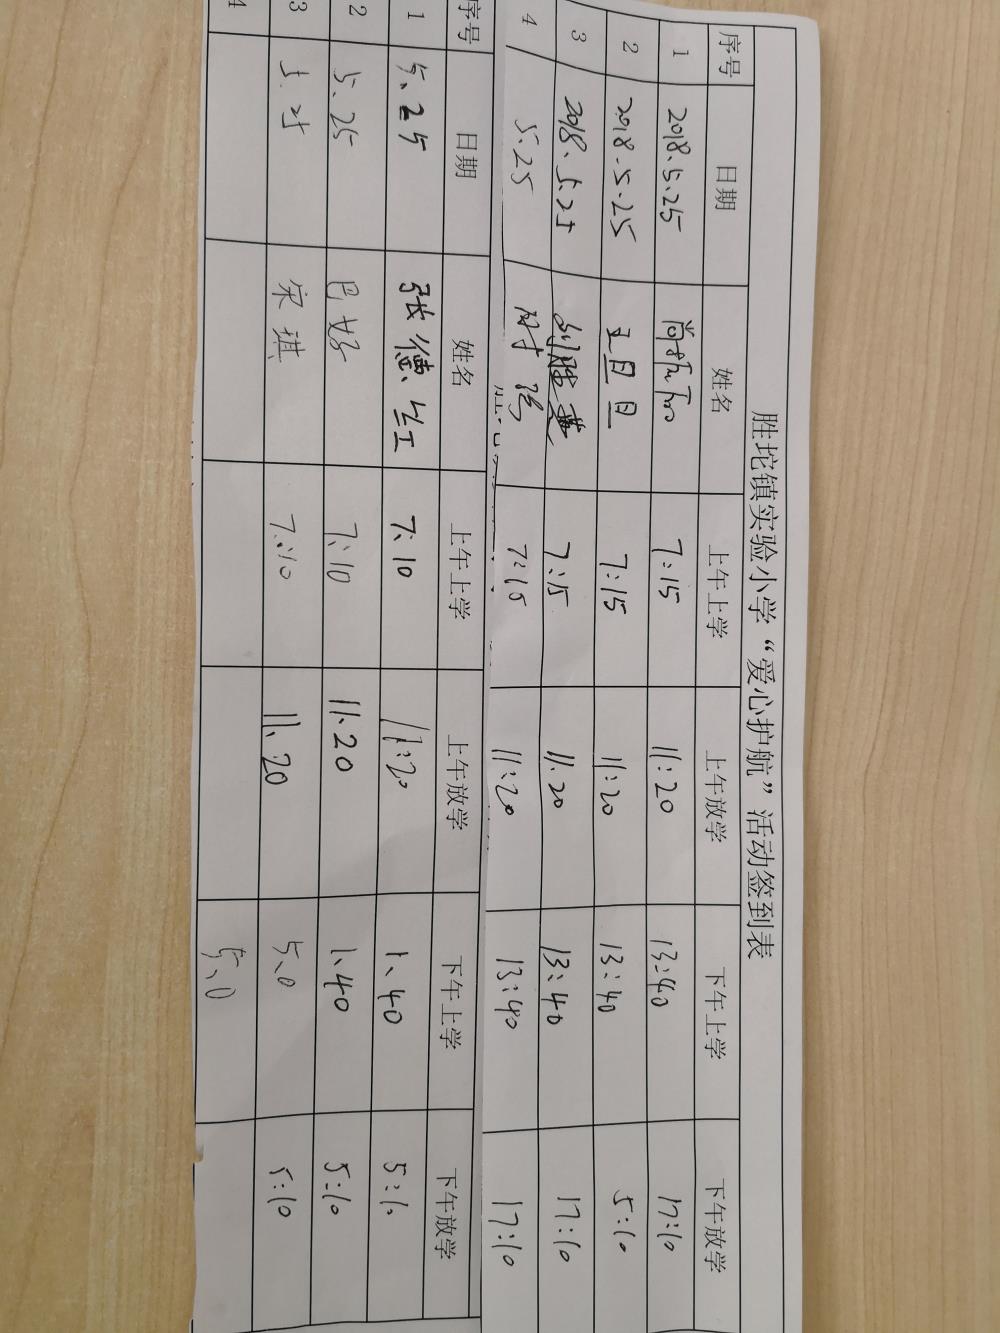 胜坨镇实验小学“爱心护航”活动签到表
序号 日期 姓名 上午上学 上午放学 下午上学 下午放学
1 2018.5.25 7:15 11:20 13:40 17:10
2 2018.5.25 王旦旦 7:15 11:20 13:40 5:10
3 2018.5.25 7:15 11.20 13:40 17:10
4 5.25 7:15 11:20 13:40 17:10
序号 日期 姓名 上午上学 上午放学 下午上学 下午放学
1 5.25 张德红 7:10 11:20 1.40 5:10
2 5.25 7:10 11.20 1.40 5:10
3 5.25 宋琪 7:10 11.20 5.0 5:10
4 5.0